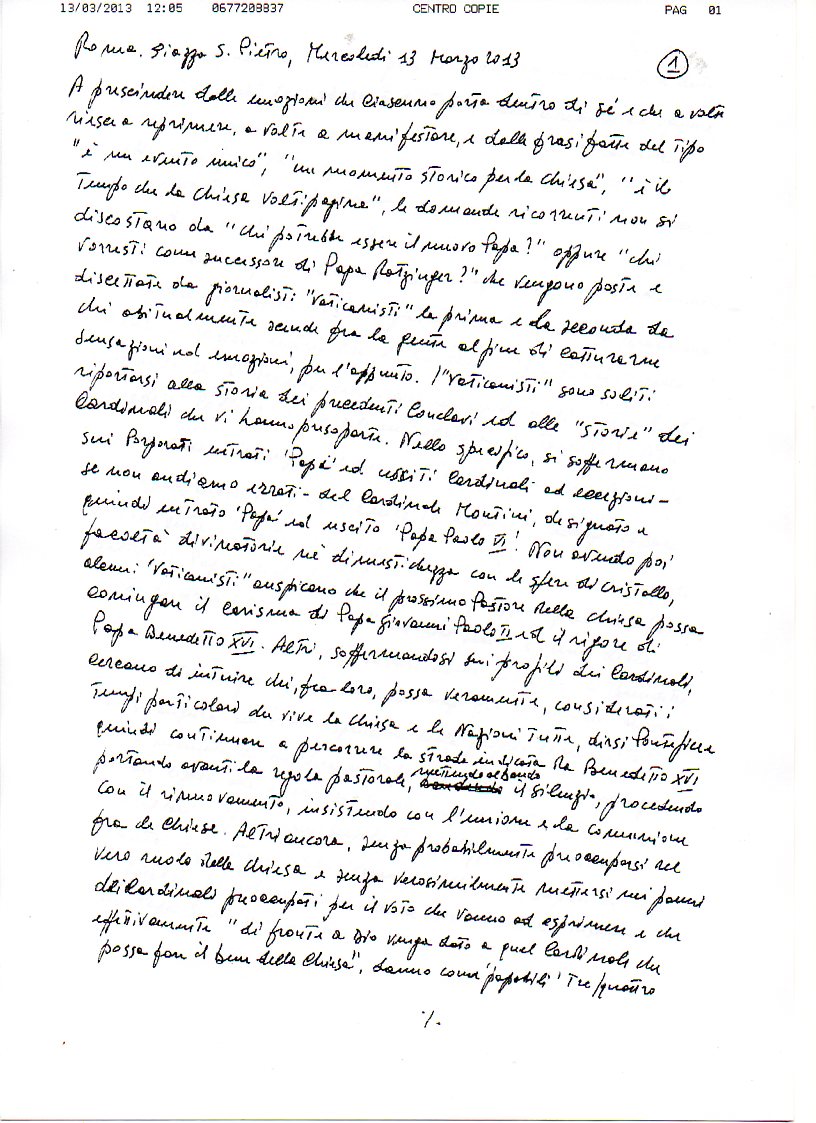 13/03/2013 12:05 0677209837 CENTRO COPIE PAG 01
Roma. Piazza S. Pietro, Mercoledì 13 Marzo 2013
1
A prescindere dalle emozioni che ciascuno porta dentro di sé e che a volte
riesce a reprimere, a volte a manifestare, e dalle frasi fatte del tipo
"è un evento unico", "un momento storico per la Chiesa", "è il
tempo che la Chiesa volti pagina", le domande ricorrenti non si
discostano da "chi potrebbe essere il nuovo Papa?" oppure "chi
vorresti come successore di Papa Ratzinger?" che vengono poste e
discettate da giornalisti "vaticanisti" la prima e la seconda da
chi abitualmente scende fra la gente al fine di catturarne
sensazioni ed emozioni, per l'appunto. I "Vaticanisti" sono soliti
riportarsi alla storia dei precedenti Conclavi ed alle "storie" dei
Cardinali che vi hanno preso parte. Nello specifico, si soffermano
sui Porporati entrati 'Papa' ed usciti Cardinali ad eccezione -
se non andiamo errati - del Cardinale Montini, designato e
quindi entrato 'Papa' ed uscito 'Papa Paolo VI'! Non avendo poi
facoltà divinatorie né dimestichezza con le sfere di cristallo,
alcuni 'Vaticanisti" auspicano che il prossimo Pastore della Chiesa possa
coniugare il carisma di Papa Giovanni Paolo II ed il rigore di
Papa Benedetto XVI. Altri, soffermandosi sui profili dei Cardinali,
cercano di intuire chi, fra loro, possa veramente, considerati i
tempi particolari che vive la Chiesa e le Nazioni tutte, dirsi Pontefice e
quindi continuare a percorrere la strada indicata da Benedetto XVI
portando avanti la regola pastorale, mettendo al bando il silenzio, procedendo
con il rinnovamento, insistendo con l'unione e la comunione
fra le Chiese. Altri ancora, senza probabilmente preoccuparsi del
vero ruolo della Chiesa e senza verosimilmente mettersi nei panni
dei Cardinali preoccupati per il voto che vanno ad esprimere e che
effettivamente "di fronte a Dio venga dato a quel Cardinale che
possa fare il bene della Chiesa", danno come 'papabili' tre/quattro
./.